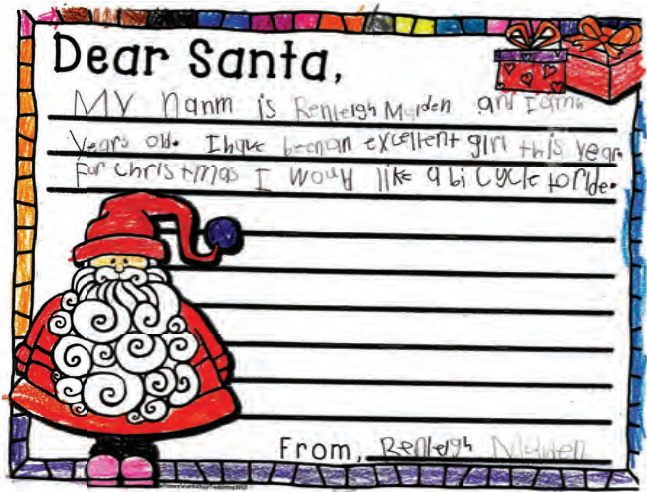 Dear Santa,
My nanm is Renleigh Marden and I am
years old. I have beenan excellent girl this year.
For christmas I woud like a bi cycle to ride.
From, Renleigh